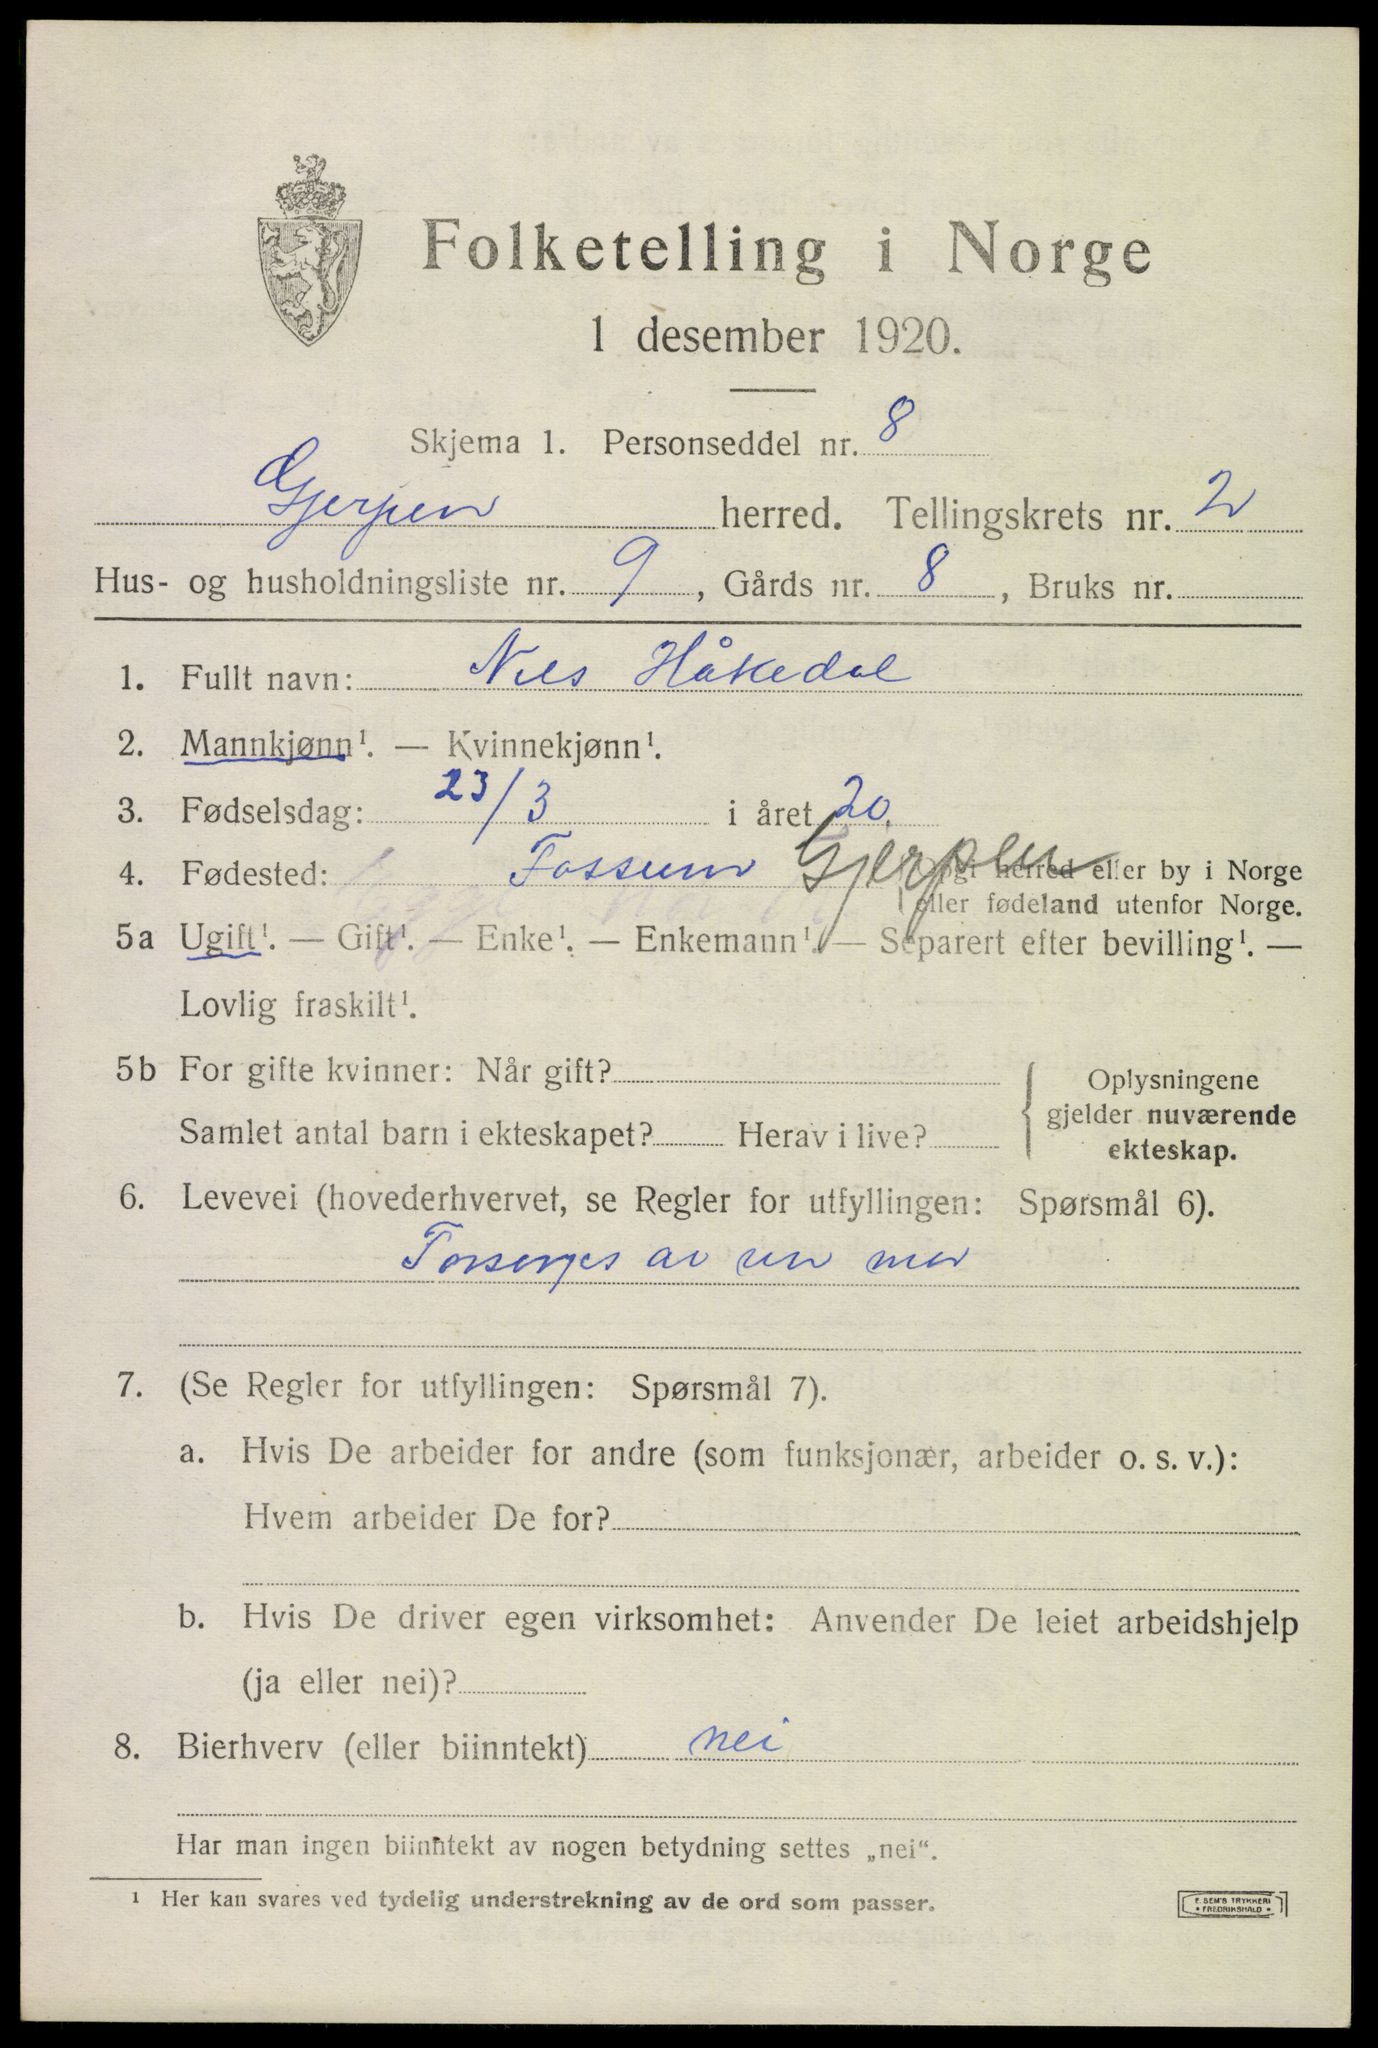 Folketelling i Norge
1 desember 1920.
Skjema 1. Personseddel nr. 8
Gjerpen herred. Tellingskrets nr. 2
Hus- og husholdningsliste nr. 9, Gårds nr. 8, Bruks nr.
1. Fullt navn: Nils Håkedal
2. Mannkjønn¹. — Kvinnekjønn¹.
3. Fødselsdag: 23/3 i året 20.
4. Fødested: Fossum Gjerpen herred eller by i Norge
eller fødeland utenfor Norge.
5a Ugift¹. — Gift¹. — Enke¹. — Enkemann¹. — Separert efter bevilling¹. —
Lovlig fraskilt¹.
5b For gifte kvinner: Når gift?
Samlet antal barn i ekteskapet? Herav i live?
Oplysningene
gjelder nuværende
ekteskap.
6. Levevei (hovederhvervet, se Regler for utfyllingen: Spørsmål 6).
Forsørges av
7. (Se Regler for utfyllingen: Spørsmål 7).
a. Hvis De arbeider for andre (som funksjonær, arbeider o. s. v.):
Hvem arbeider De for?
b. Hvis De driver egen virksomhet: Anvender De leiet arbeidshjelp
(ja eller nei)?
8. Bierhverv (eller biinntekt) nei
Har man ingen biinntekt av nogen betydning settes „nei“.
¹ Her kan svares ved tydelig understrekning av de ord som passer.
E. SEM'S TRYKKERI
• FREDRIKSHALD •